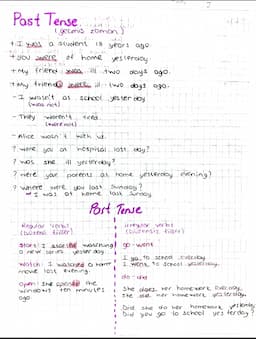 Past Tense
(geçmiş zaman)
+ I was a student 13 years ago.
+ You were at home yesterday
+ My friend was ill two days ago.
+ My friends were ill two days ago.
- I wasn't at school yesterday
(was not)
- They weren't tired
(were not)
- Alice wasn't with us.
? Were you at hospital last day?
? Was she ill yesterday?
? Were your parents at home yesterday evening?
? Where were you last Sunday?
I was at home last Sunday
Past Tense
Regular verbs
(Düzenli fiiller)
Start: I started watching
a new series yesterday.
Watch: I watched a horror
movie last evening.
Open: She opened the
windows ten minutes
ago
Irregular verbs
(Düzensiz fiiller)
go - went
I go to school everyday
I went to school yesterday.
do - did
She does her homework everyday
She did her homework yesterday.
Did she do her homework yesterday
Did you go to school yesterday?